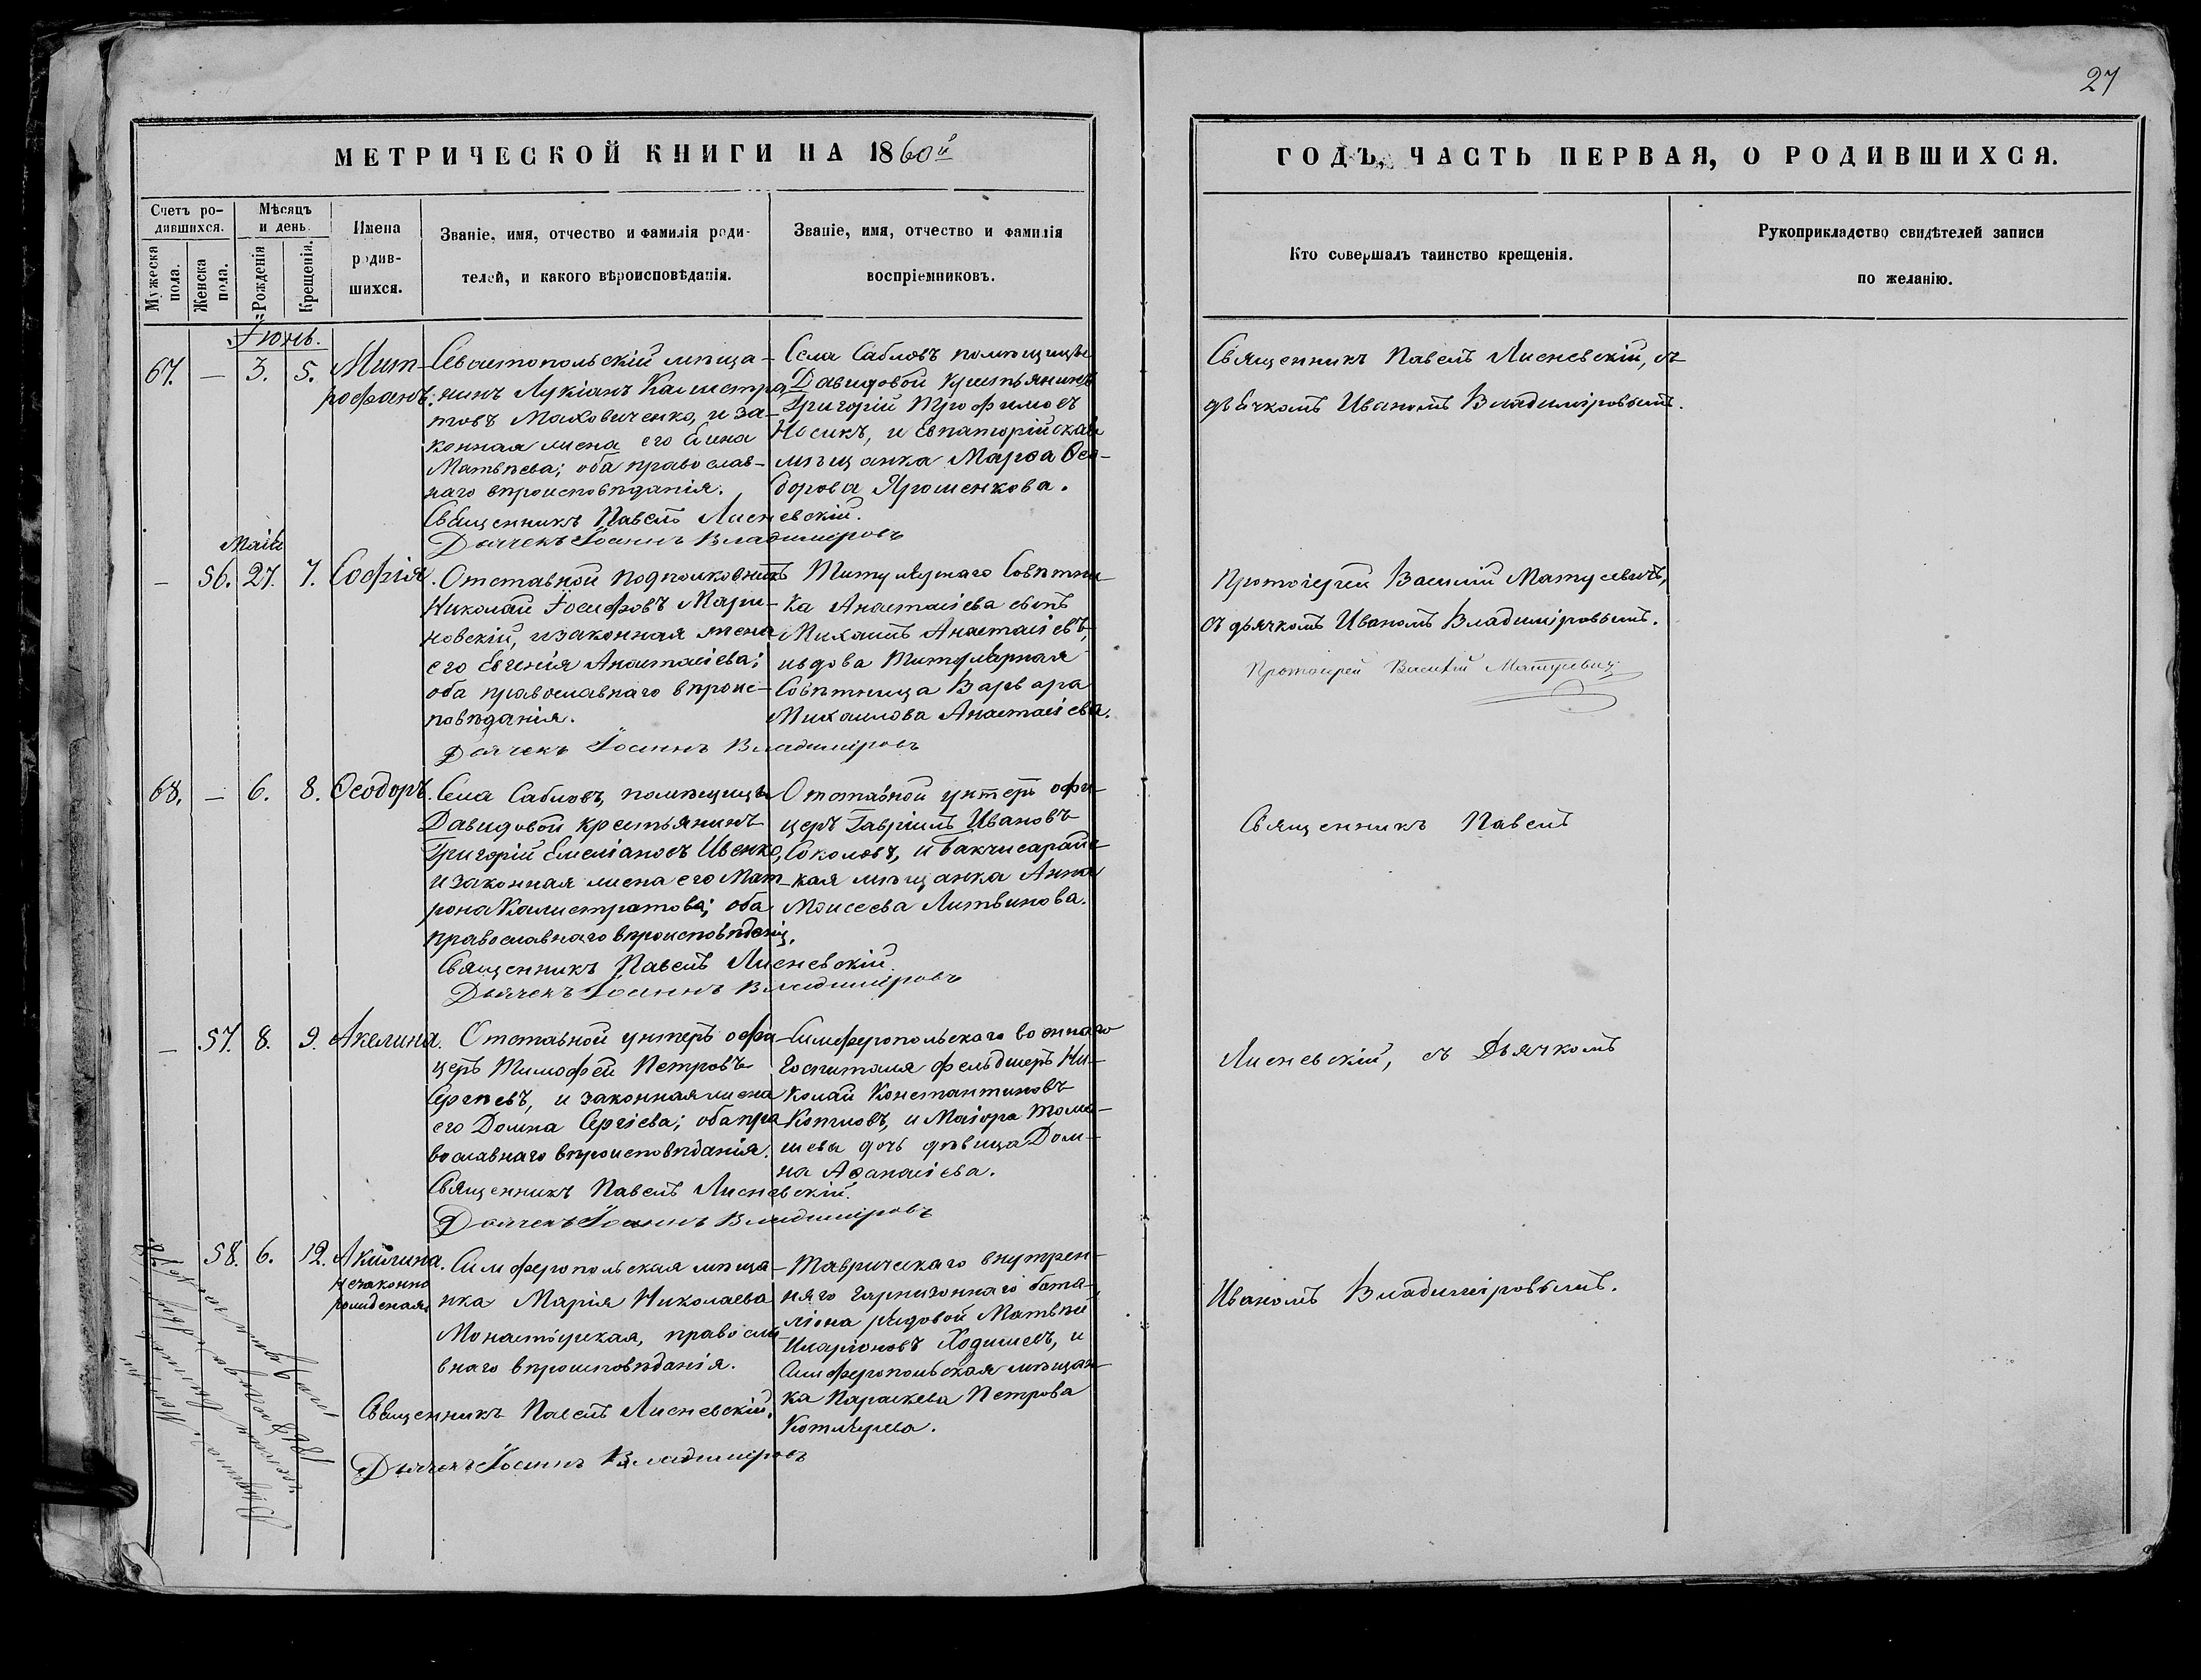 27
МЕТРИЧЕСКОЙ КНИГИ НА 1860й
ГОДЪ, ЧАСТЬ ПЕРВАЯ, О РОДИВШИХСЯ.
Счетъ ро-
дившихся.
Мужеска
пола.
Женска
пола.
Мѣсяцъ
и день.
Рожденія
Крещенія.
Имена
родив-
шихся.
Званіе, имя, отчество и фамилія роди-
телей, и какого вѣроисповѣданія.
Званіе, имя, отчество и фамилія
воспріемниковъ.
Кто совершалъ таинство крещенія.
Рукоприкладство свидѣтелей записи
по желанію.
Іюнь.
67. — 3. 5. Мит-
рофанъ.
Севастопольскій мѣща-
нинъ Лукіанъ Калистра
товъ Маховиченко, и за-
конная жена его Елена
Матвѣева; оба православ-
наго вѣроисповѣданія.
Священникъ Павелъ Лисневскій.
Дьячекъ Іоаннъ Владиміровъ
Села Сабловъ помѣщицы
Давидовой крестьянинъ
Григорій Трофимовъ
Носикъ, и Евпаторійская
мѣщанка Марѳа Ѳео-
дорова Ярошенкова.
Священникъ Павелъ Лисневскій, съ
дьячкомъ Иваномъ Владиміровымъ.
Маія
— 56. 27. 7. Софія.
Отставной подполковникъ
Николай Іосифовъ Мари-
новскій, и законная жена
его Евгенія Анастасіева;
оба православнаго вѣроис-
повѣданія.
Дьячекъ Іоаннъ Владиміровъ
Титулярнаго Совѣтни-
ка Анастасіева сынъ
Михаилъ Анастасіевъ,
и вдова Титулярная
Совѣтница Варвара
Михаилова Анастасіева.
Протоіерей Василій Матусевичъ,
съ дьячкомъ Иваномъ Владиміровымъ.
Протоіерей Василій Матусевичъ
68. — 6. 8. Ѳеодоръ.
Села Сабловъ, помѣщицы
Давидовой крестьянинъ
Григорій Емеліановъ Ивенко,
и законная жена его Мат-
рона Калистратова; оба
православнаго вѣроисповѣданія.
Священникъ Павелъ Лисневскій.
Дьячекъ Іоаннъ Владиміровъ
Отставной унтеръ офи-
церъ Гавріилъ Ивановъ
Соколовъ, и Бакчисарайс-
кая мѣщанка Анна
Моисеева Литвинова.
Священникъ Павелъ
— 57. 8. 9. Акелина.
Отставной унтеръ офи-
церъ Тимофей Петровъ
Сергѣевъ, и законная жена
его Домна Сергіева; оба пра
вославнаго вѣроисповѣданія.
Священникъ Павелъ Лисневскій.
Дьячекъ Іоаннъ Владиміровъ
Симферопольскаго военнаго
Госпиталя фельдшеръ Ни-
колай Константиновъ
Котловъ, и Маіора
дочь дѣвица Дом-
на Аѳанасіева.
Лисневскій, съ Дьячкомъ
58. 6. 12. Акилина.
незаконно
рожденая.
Симферопольская мѣща-
нка Марія Николаева
Монастырская, правосла-
внаго вѣроисповѣданія.
Священникъ Павелъ Лисневскій.
Дьячекъ Іоаннъ Владиміровъ
Таврическаго внутрен-
няго гарнизоннаго бата-
ліона рядовой Матвѣй
Иларіоновъ Ходишевъ, и
Симферопольская мѣщан-
ка Параскева Петрова
Котлярева.
Иваномъ Владиміровымъ.